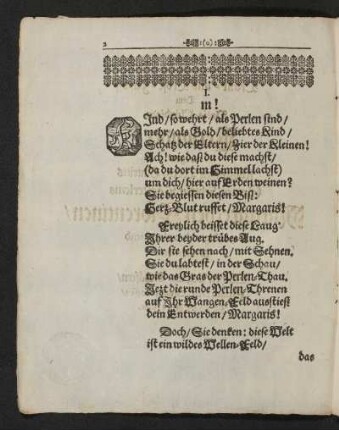 2
I.
m!
KInd/ so wehrt/ als Perlen sind/
mehr/ als Gold/ beliebtes Kind/
Schatz der Eltern/ Zier der Kleinen!
Ach! wie daß du diese machst/
(da du dort im Himmel lachst)
um dich/ hier auf Erden weinen?
Sie begiessen diesen Biß:
Hertz-Blut ruffet/ Margaris!
Freylich beisset diese Laug'
Ihrer beyder trübes Aug.
Dir sie sehen nach/ mit Sehnen.
Sie du labtest/ in der Schau/
wie das Gras der Perlen-Thau.
Jezt die runde Perlen-Threnen
auf Ihr Wangen-Feld ausstieß
dein Entwerden/ Margaris!
Doch/ Sie denken: diese Welt
ist ein wildes Wellen-Feld/
das